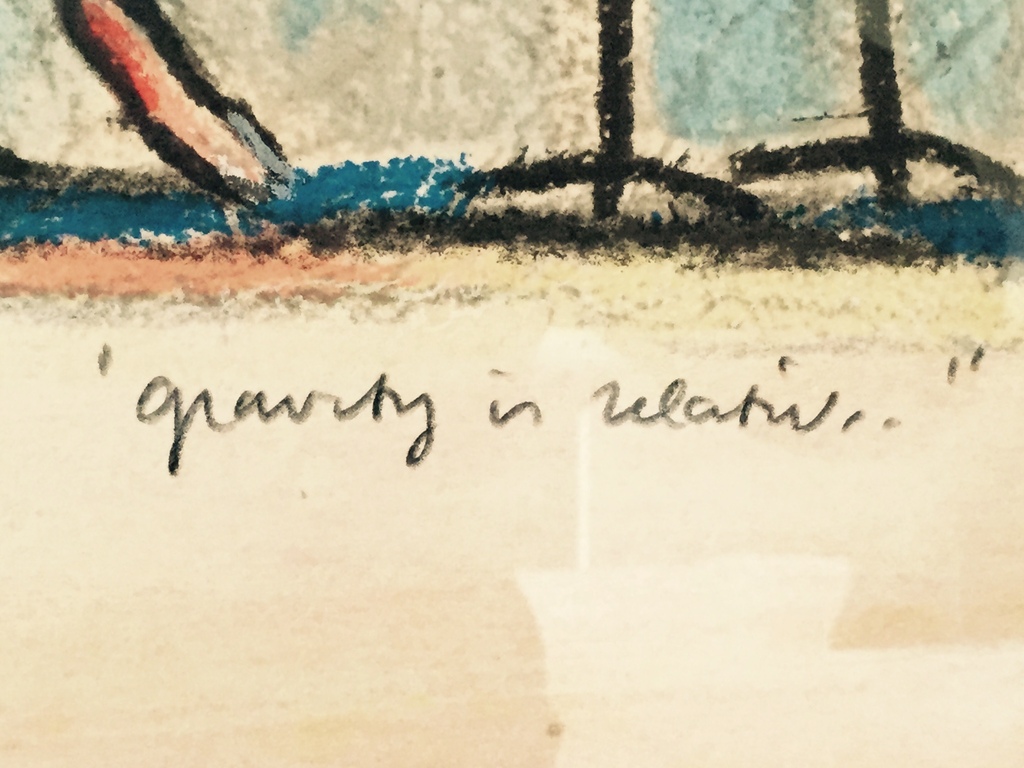 'gravity is relative."